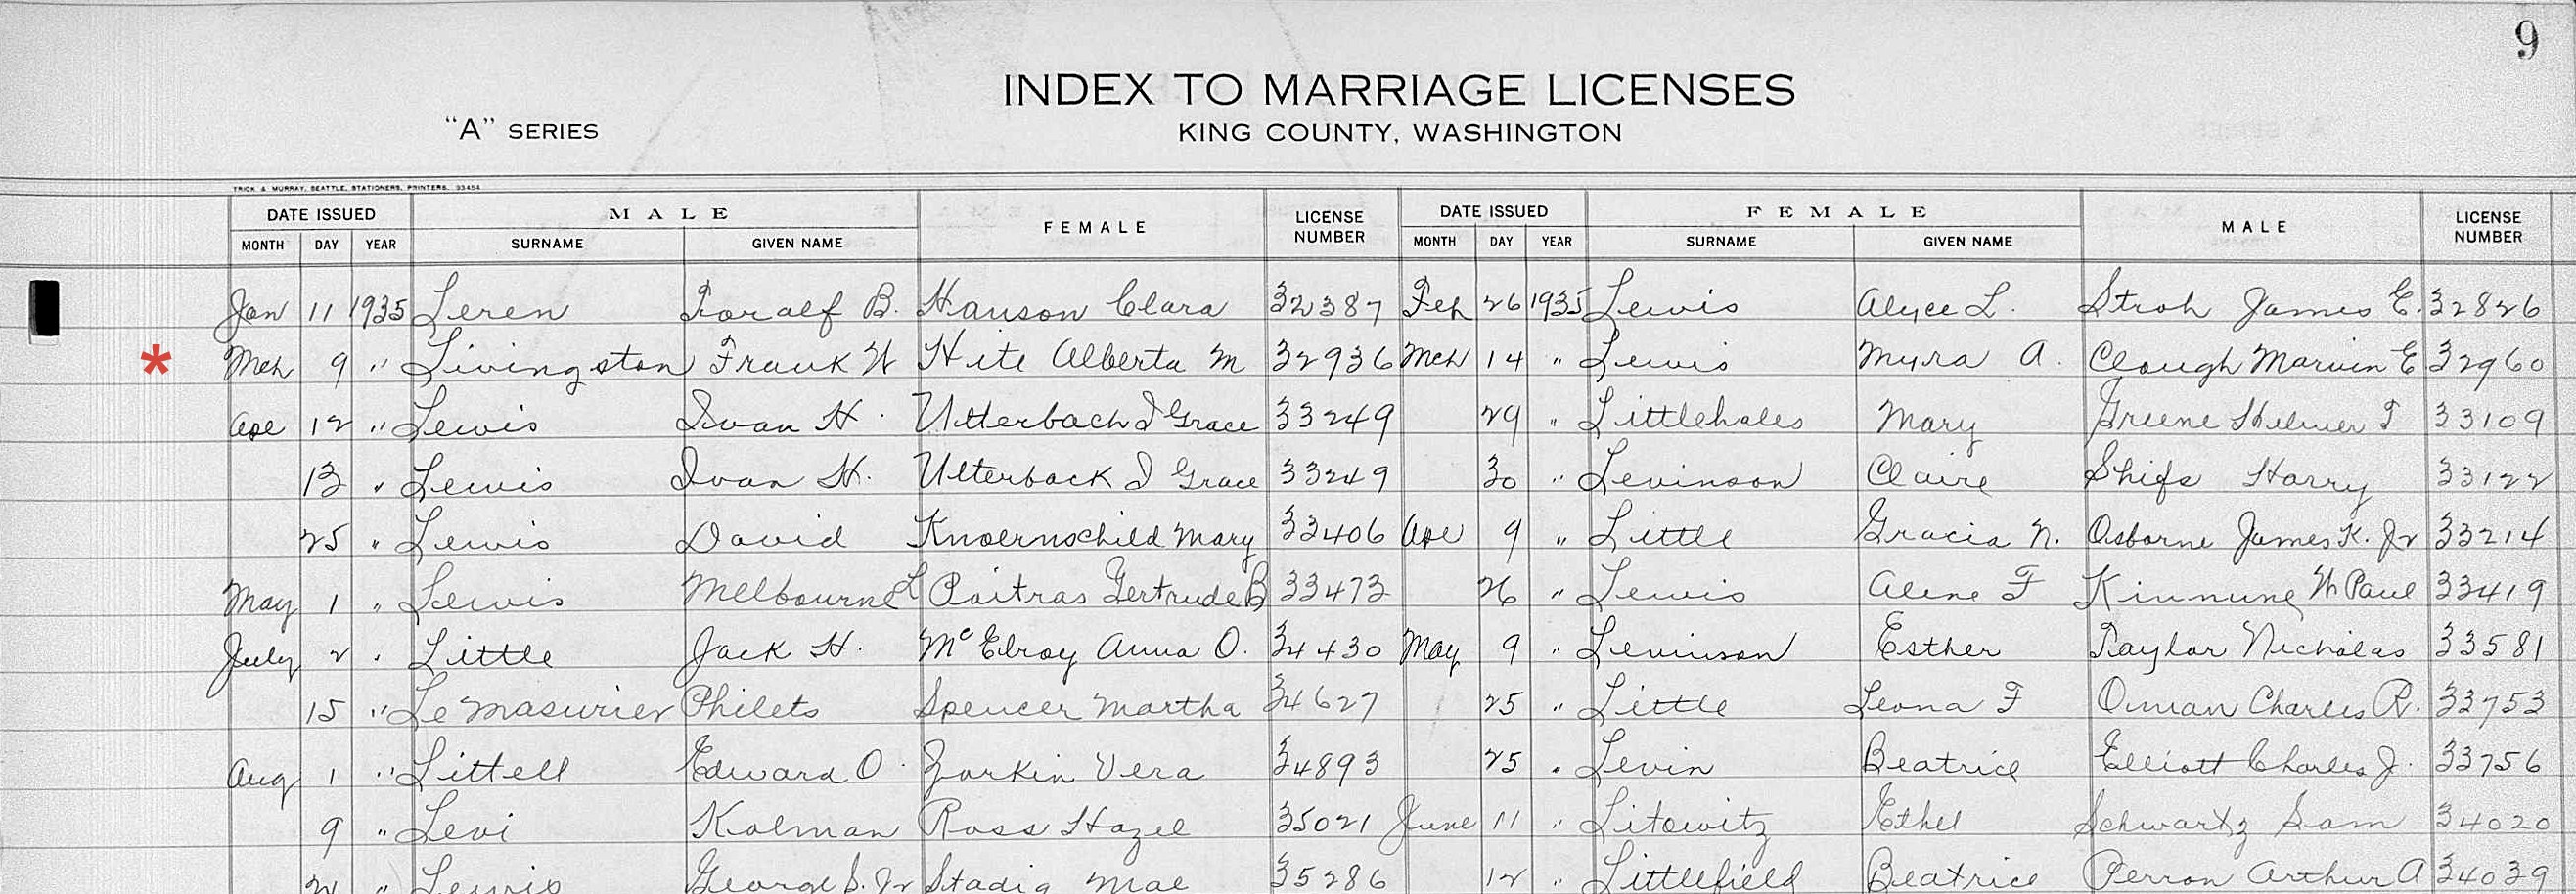 9
INDEX TO MARRIAGE LICENSES
"A" SERIES
KING COUNTY, WASHINGTON
TRICK & MURRAY, SEATTLE, STATIONERS, PRINTERS. 33454
DATE ISSUED MALE FEMALE LICENSE NUMBER DATE ISSUED FEMALE MALE LICENSE NUMBER
MONTH DAY YEAR SURNAME GIVEN NAME MONTH DAY YEAR SURNAME GIVEN NAME
Jan 11 1935 Leren Toralf B. Hanson Clara 32387 Feb 26 1935 Lewis Alyce L. Stroh James E. 32826
* Mch 9 " Livingston Frank W Hite Alberta M 32936 Mch 14 " Lewis Myra A. Clough Marvin E 32960
Ape 12 " Lewis Ivan H. Utterbach I Grace 33249 29 " Littlehales Mary Greene Helmer T 33109
13 " Lewis Ivan H. Utterback I Grace 33249 30 " Levinson Claire Harry 33122
25 " Lewis David Knoernschild Mary 33406 Ape 9 " Little Gracia N. Osborne James K. Jr 33214
May 1 " Lewis Melbourne L Poitras Gertrude B 33473 26 " Lewis Alene F Kinnune W Paul 33419
July 2 " Little Jack H. McElroy Anna O. 34430 May 9 " Levinson Esther Taylor Nicholas 33581
15 " Le Masurier Philets Spencer Martha 34627 25 " Little Leona F Charles R. 33753
Aug 1 " Littell Edward O. Zorkin Vera 34893 25 " Levin Beatrice Elliott Charles J. 33756
9 " Levi Kolman Ross Hazel 35021 June 11 " Litowitz Ethel Schwartz Sam 34020
21 " Lewis George S. Jr Stadig Mae 35286 12 " Littlefield Beatrice Perron Arthur A 34039